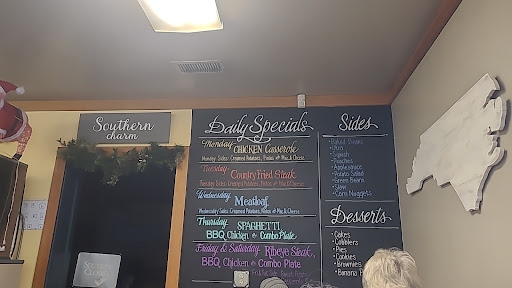 Southern
charm
Daily Specials
Monday
CHICKEN Casserole
Monday Sides: Creamed Potatoes, Pintos or Mac & Cheese
Tuesday
Country Fried Steak
Tuesday Sides: Creamed Potatoes, Pintos or Mac & Cheese
Wednesday
Meatloaf
Wednesday Sides: Creamed Potatoes, Pintos or Mac & Cheese
Thursday
SPAGHETTI
BBQ, Chicken or Combo Plate
Friday & Saturday Ribeye Steak,
BBQ, Chicken or Combo Plate
Sides
• Baked Beans
• Fries
• Squash
• Peaches
• Applesauce
• Potato Salad
• Green Beans
• Slaw
• Corn Nuggets
Desserts
• Cakes
• Cobblers
• Pies
• Cookies
• Brownies
• Banana